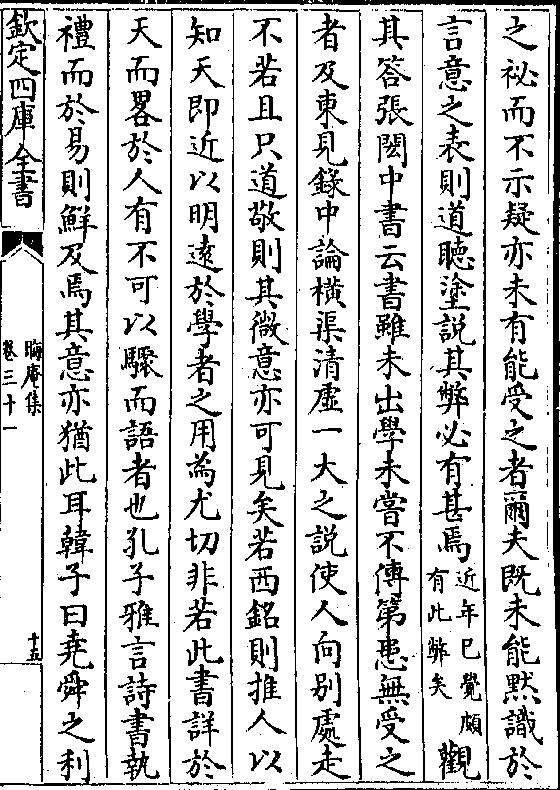 之祕而不示疑亦未有能受之者爾夫既未能黙識於
言意之表則道聽塗説其弊必有甚焉近年已覺頗有此弊矣觀
其答張閎中書云書雖未出學未嘗不傳第患無受之
者及東見錄中論橫渠清虛一大之説使人向别處走
不若且只道敬則其微意亦可見矣若西銘則推人以
知天即近以明遠於學者之用為尤切非若此書詳於
天而畧於人有不可以驟而語者也孔子雅言詩書執
禮而於易則鮮及焉其意亦猶此耳韓子曰堯舜之利
欽定四庫全書
晦庵集
卷三十一
十五